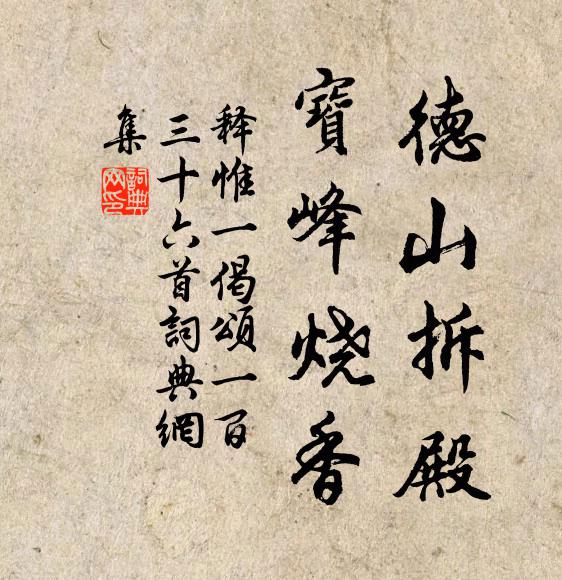 德山拆殿
寶峰烧香
释惟一偈颂一百
三十六首詞典網
集
詞典
网印